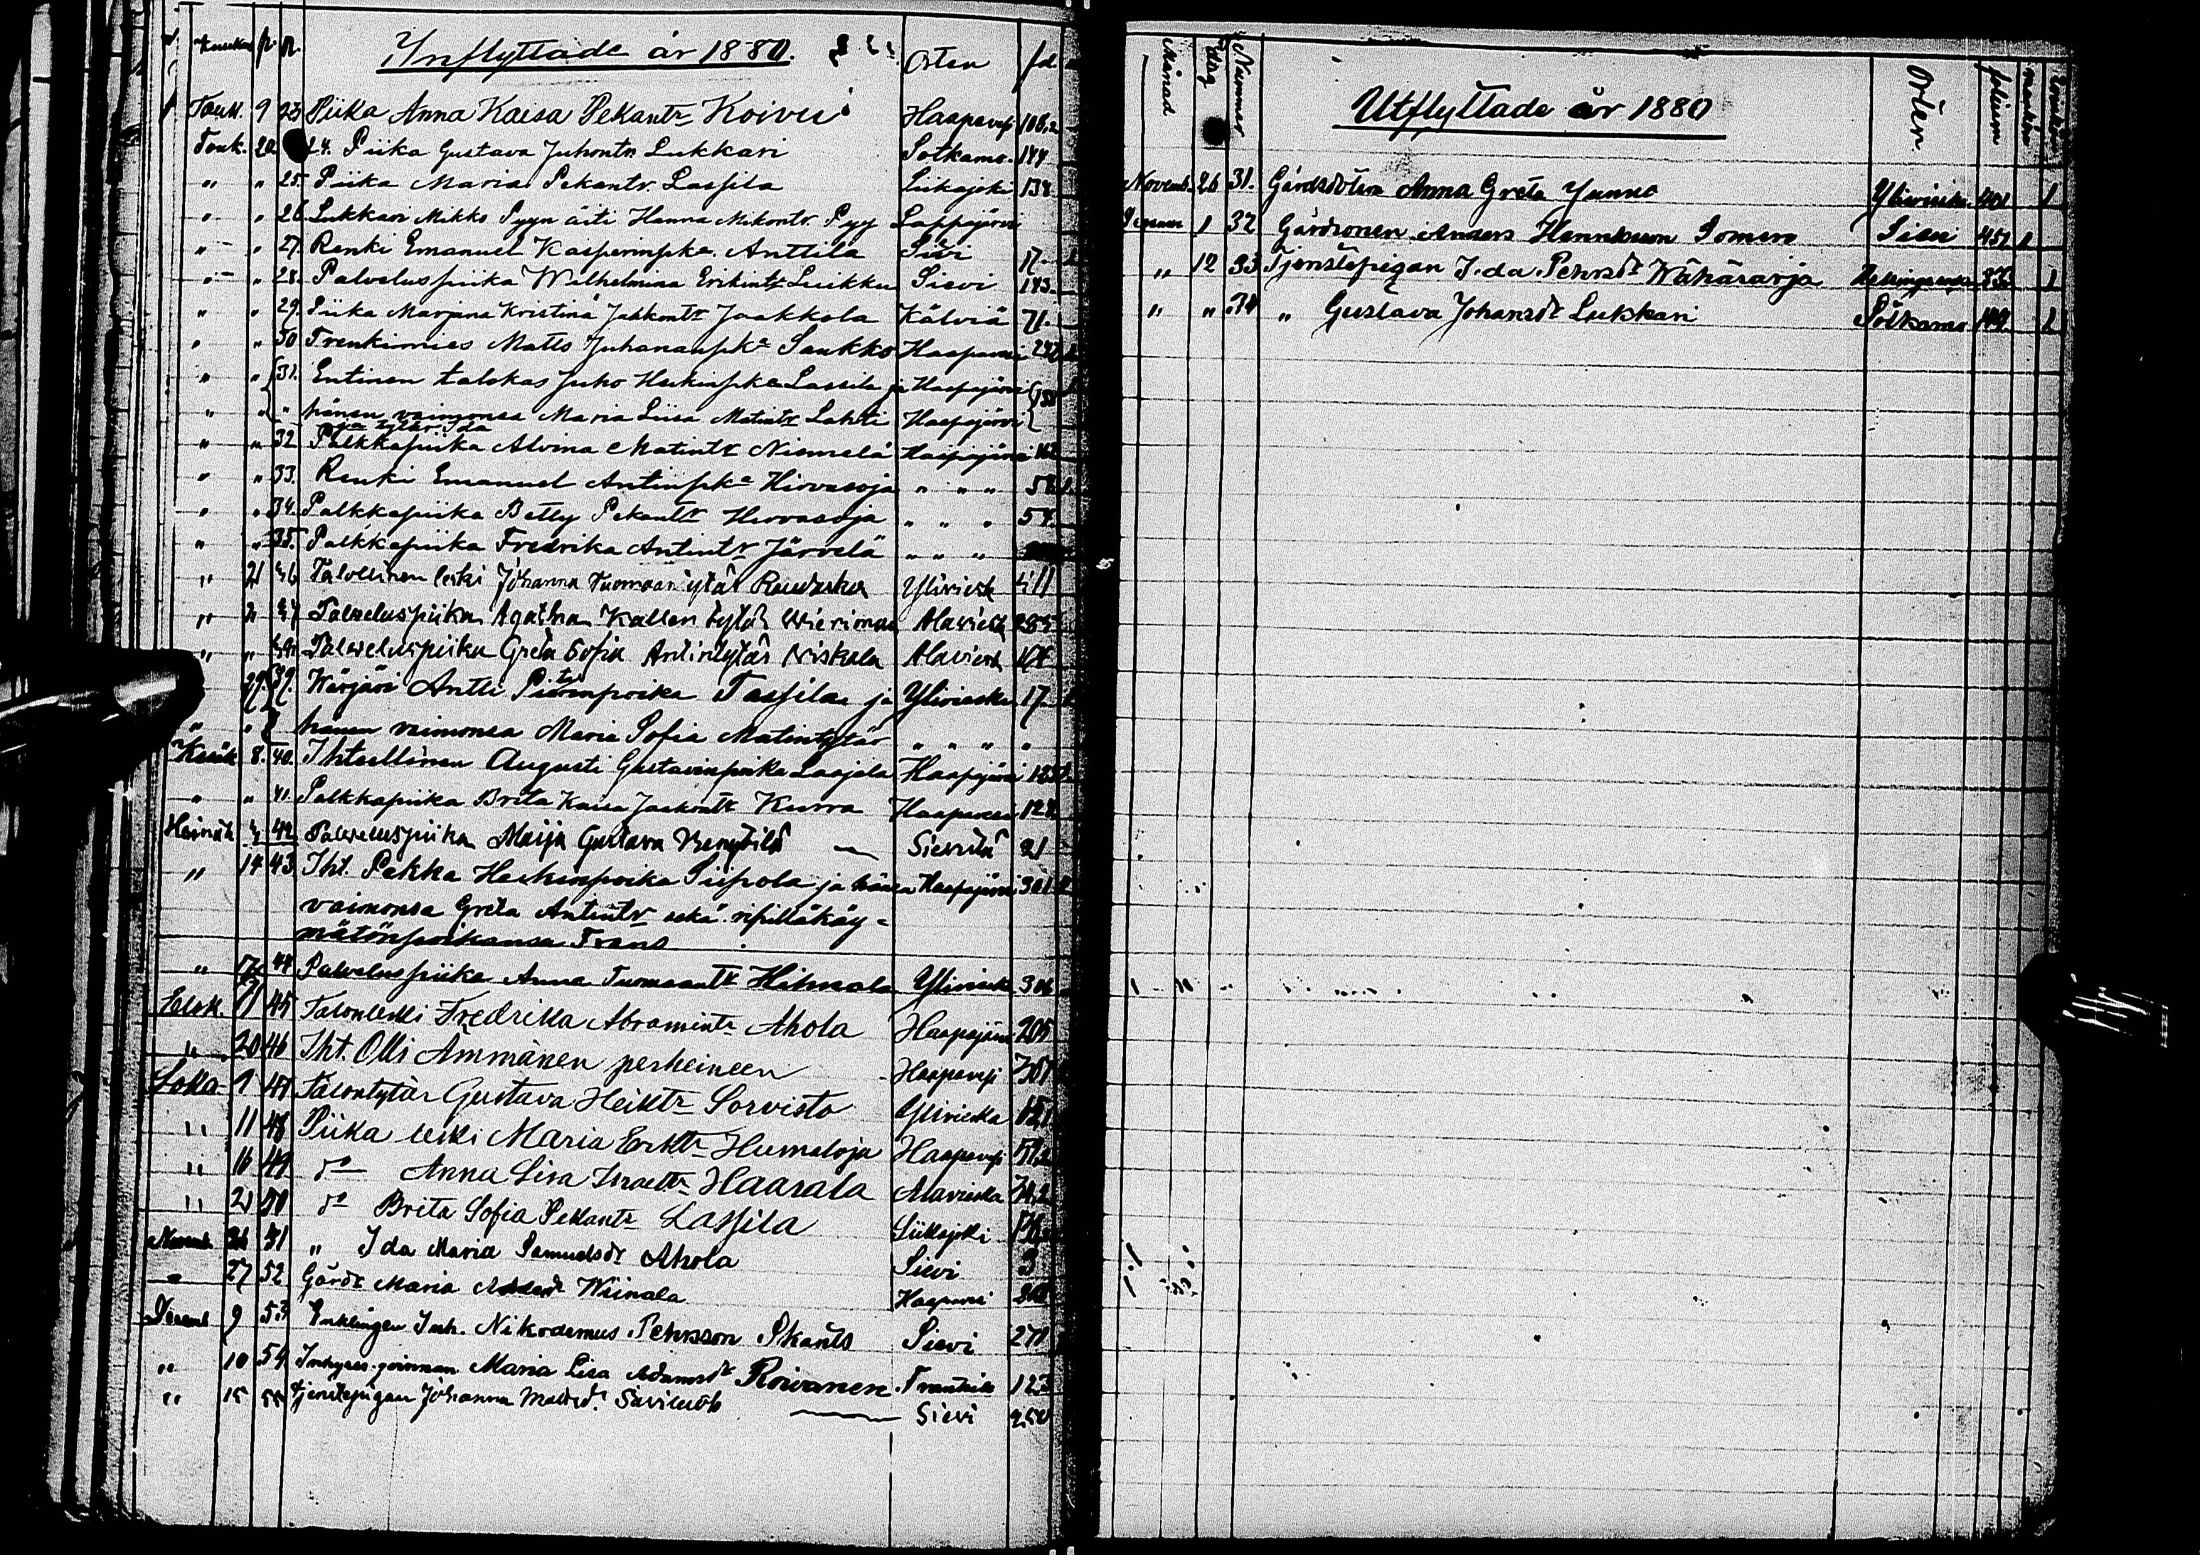 Inflyttade år 1880. Orten fol
Touk. 9 23 Piika Anna Kaisa Pekantr Koivu Haapavesi 108,2
Touk. 20 24. Piika Gustava Juhontr. Lukkari Sotkamo. 144
" " 25. Piika Maria Pekantr. Lassila Siikajoki 134
" " 26 Lukkari Mikko Pyyn äiti Hanna Mikontr. Pyy Lappajärvi
" " 27. Renki Emanuel Kasperinpka. Anttila Sievi 17.
" " 28. Palveluspiika Wilhelmina Erikintr Luikku Sievi 143.
" " 29. Piika Marjana Kristina Jakkontr Jaakkola Kälviä 71.
" " 30 Trenkimies Matts Juhananpka Saukko Haapavesi
" " 31. Entinen talokas Juho Heikinpka Lassila ja Haapajärvi
" " " hänen vaimonsa Maria Liisa Matintr Lahti Haapajärvi
ja tytär Ida
" " 32 Palkkapiika Alvina Matintr Niemelä Haapajärvi
" " 33. Renki Emanuel Antinpka Hirvasoja " " "
" " 34. Palkkapiika Betty Pekantr Hirvasoja " " " 54.
" " 35. Palkkapiika Fredrika Antintr Järvelä " " "
" 21 36 Talollinen leski Johanna Tuomaan tytär Ylivieska
" " 37 Palveluspiika Agatha Kallen tytär Wierimaa Alavieska 285
" " Palveluspiika Greta Sofia Antintytär Niskala Alavieska
29. 39. Antti Pietarinpoika Tassila ja Ylivieska 17
" " hänen vaimonsa Maria Sofia Matintytär " " " "
Kesäk 8. 40. Ihtellinen Augusti Gustavinpoika Laajala Haapajärvi
" " 41 Palkkapiika Brita Kaisa Jaakontr Kurra Haapavesi
Heinäk 42 Palveluspiika Maija Gustava — Sievistä 21
" 14 43 Iht. Pekka Heikinpoika Siipola ja hänen Haapajärvi
vaimonsa Greta Antintr sekä ripilläkäy=
mätönpoikansa Frans
" 44 Palveluspiika Anna Tuomaantr Hihnala Ylivieska 306
Elok. 11 45 Talonleski Fredrika Abramintr Ahola Haapajärvi 205
" 20 46 Iht. Olli Ämmänen perheineen Haapavesi 307
Loka 1 47 Talontytär Gustava Heiktr Sorvisto Ylivieska
" 11 48 Piika leski Maria Erktr Humaloja Haapavesi
" 16 49 do Anna Lisa Israeltr Haarala Alavieska
" 21 50 do Brita Sofia Pekantr Lassila Siikajoki
Novemb. 26 51 " Ida Maria Samuelsdr Ahola Sievi 3
" 27 52 Gårdr Maria Wiinala Haapavesi
Decemb 9 53 Enklingen Inh. Nikodemus Pehrsson Skants Sievi 271
" 10 54 Maria Lisa Adamsdr Roivanen. Frantsila 123
" 15 55 Tjenstepigan Johanna Mattsdr. — Sievi 250
Månad dag Nummer Utflyttade år 1880 Orten folium mankön qvinkön
Novemb. 26 31. Gårdsdottern Anna Greta Junno Ylivieska. 401 1
1 32 Gårdsonen Anders Henriksson Somero Sievi 451 1
" 12 33 Tjenstepigan Ida Pehrsdr Wähäsarja 1
" " 34 " Gustava Johansdr Lukkari Sotkamo 1